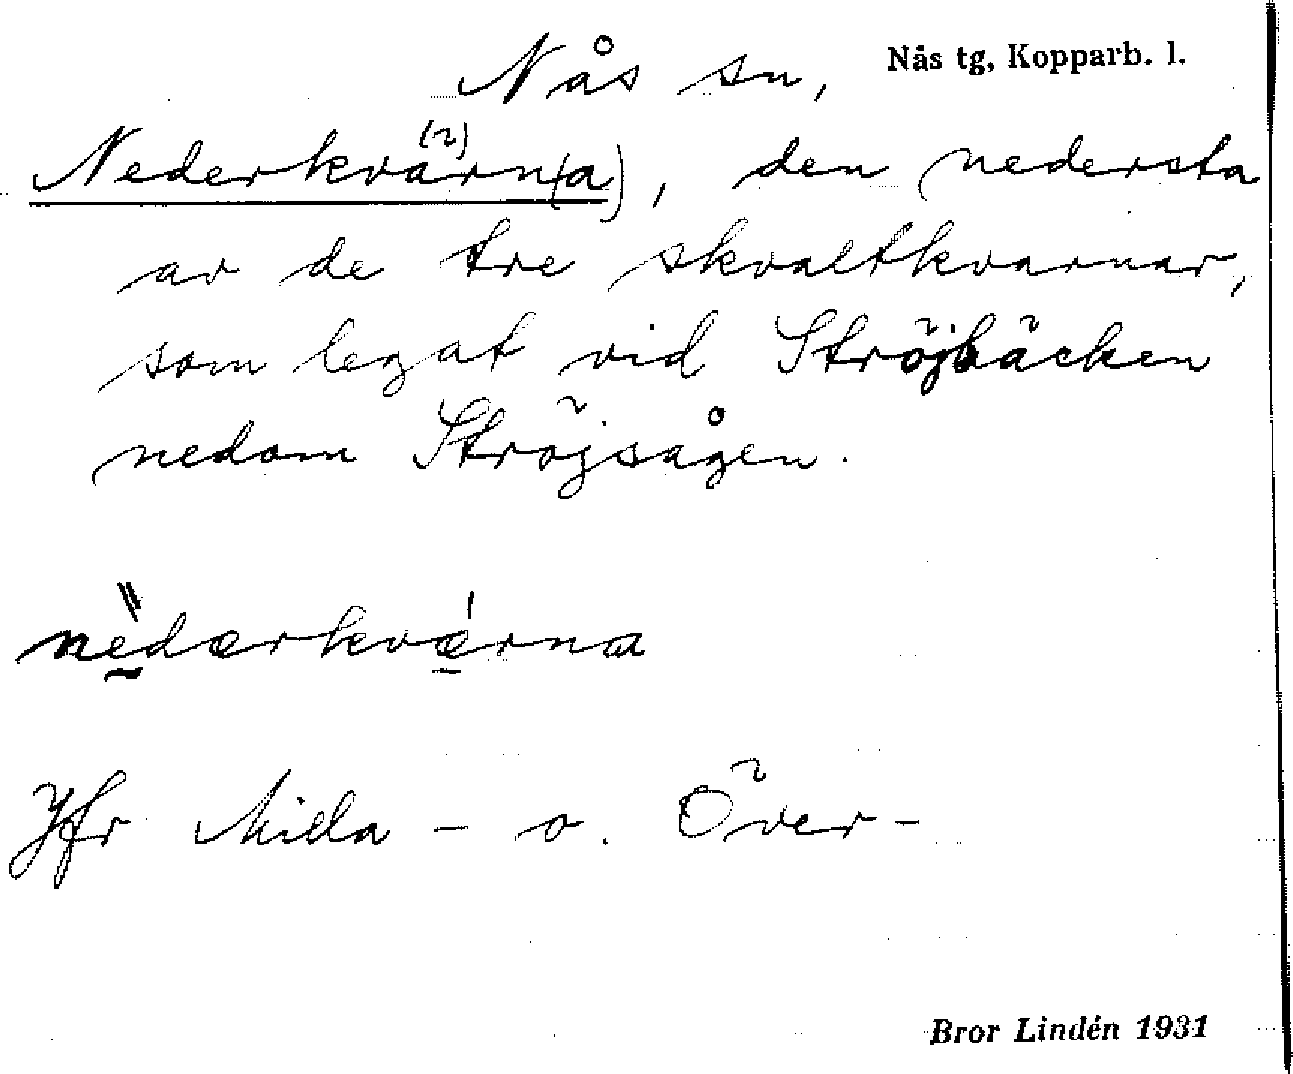 Nås sn,
Nås tg, Kopparb. l.
Nederkvärn(a), den nedersta
av de tre skvaltkvarnar,
som legat vid Ströjbäcken
nedom Ströjsågen.
nèdærkvǽrna
Jfr Milla- o. Över-
Bror Lindén 1931